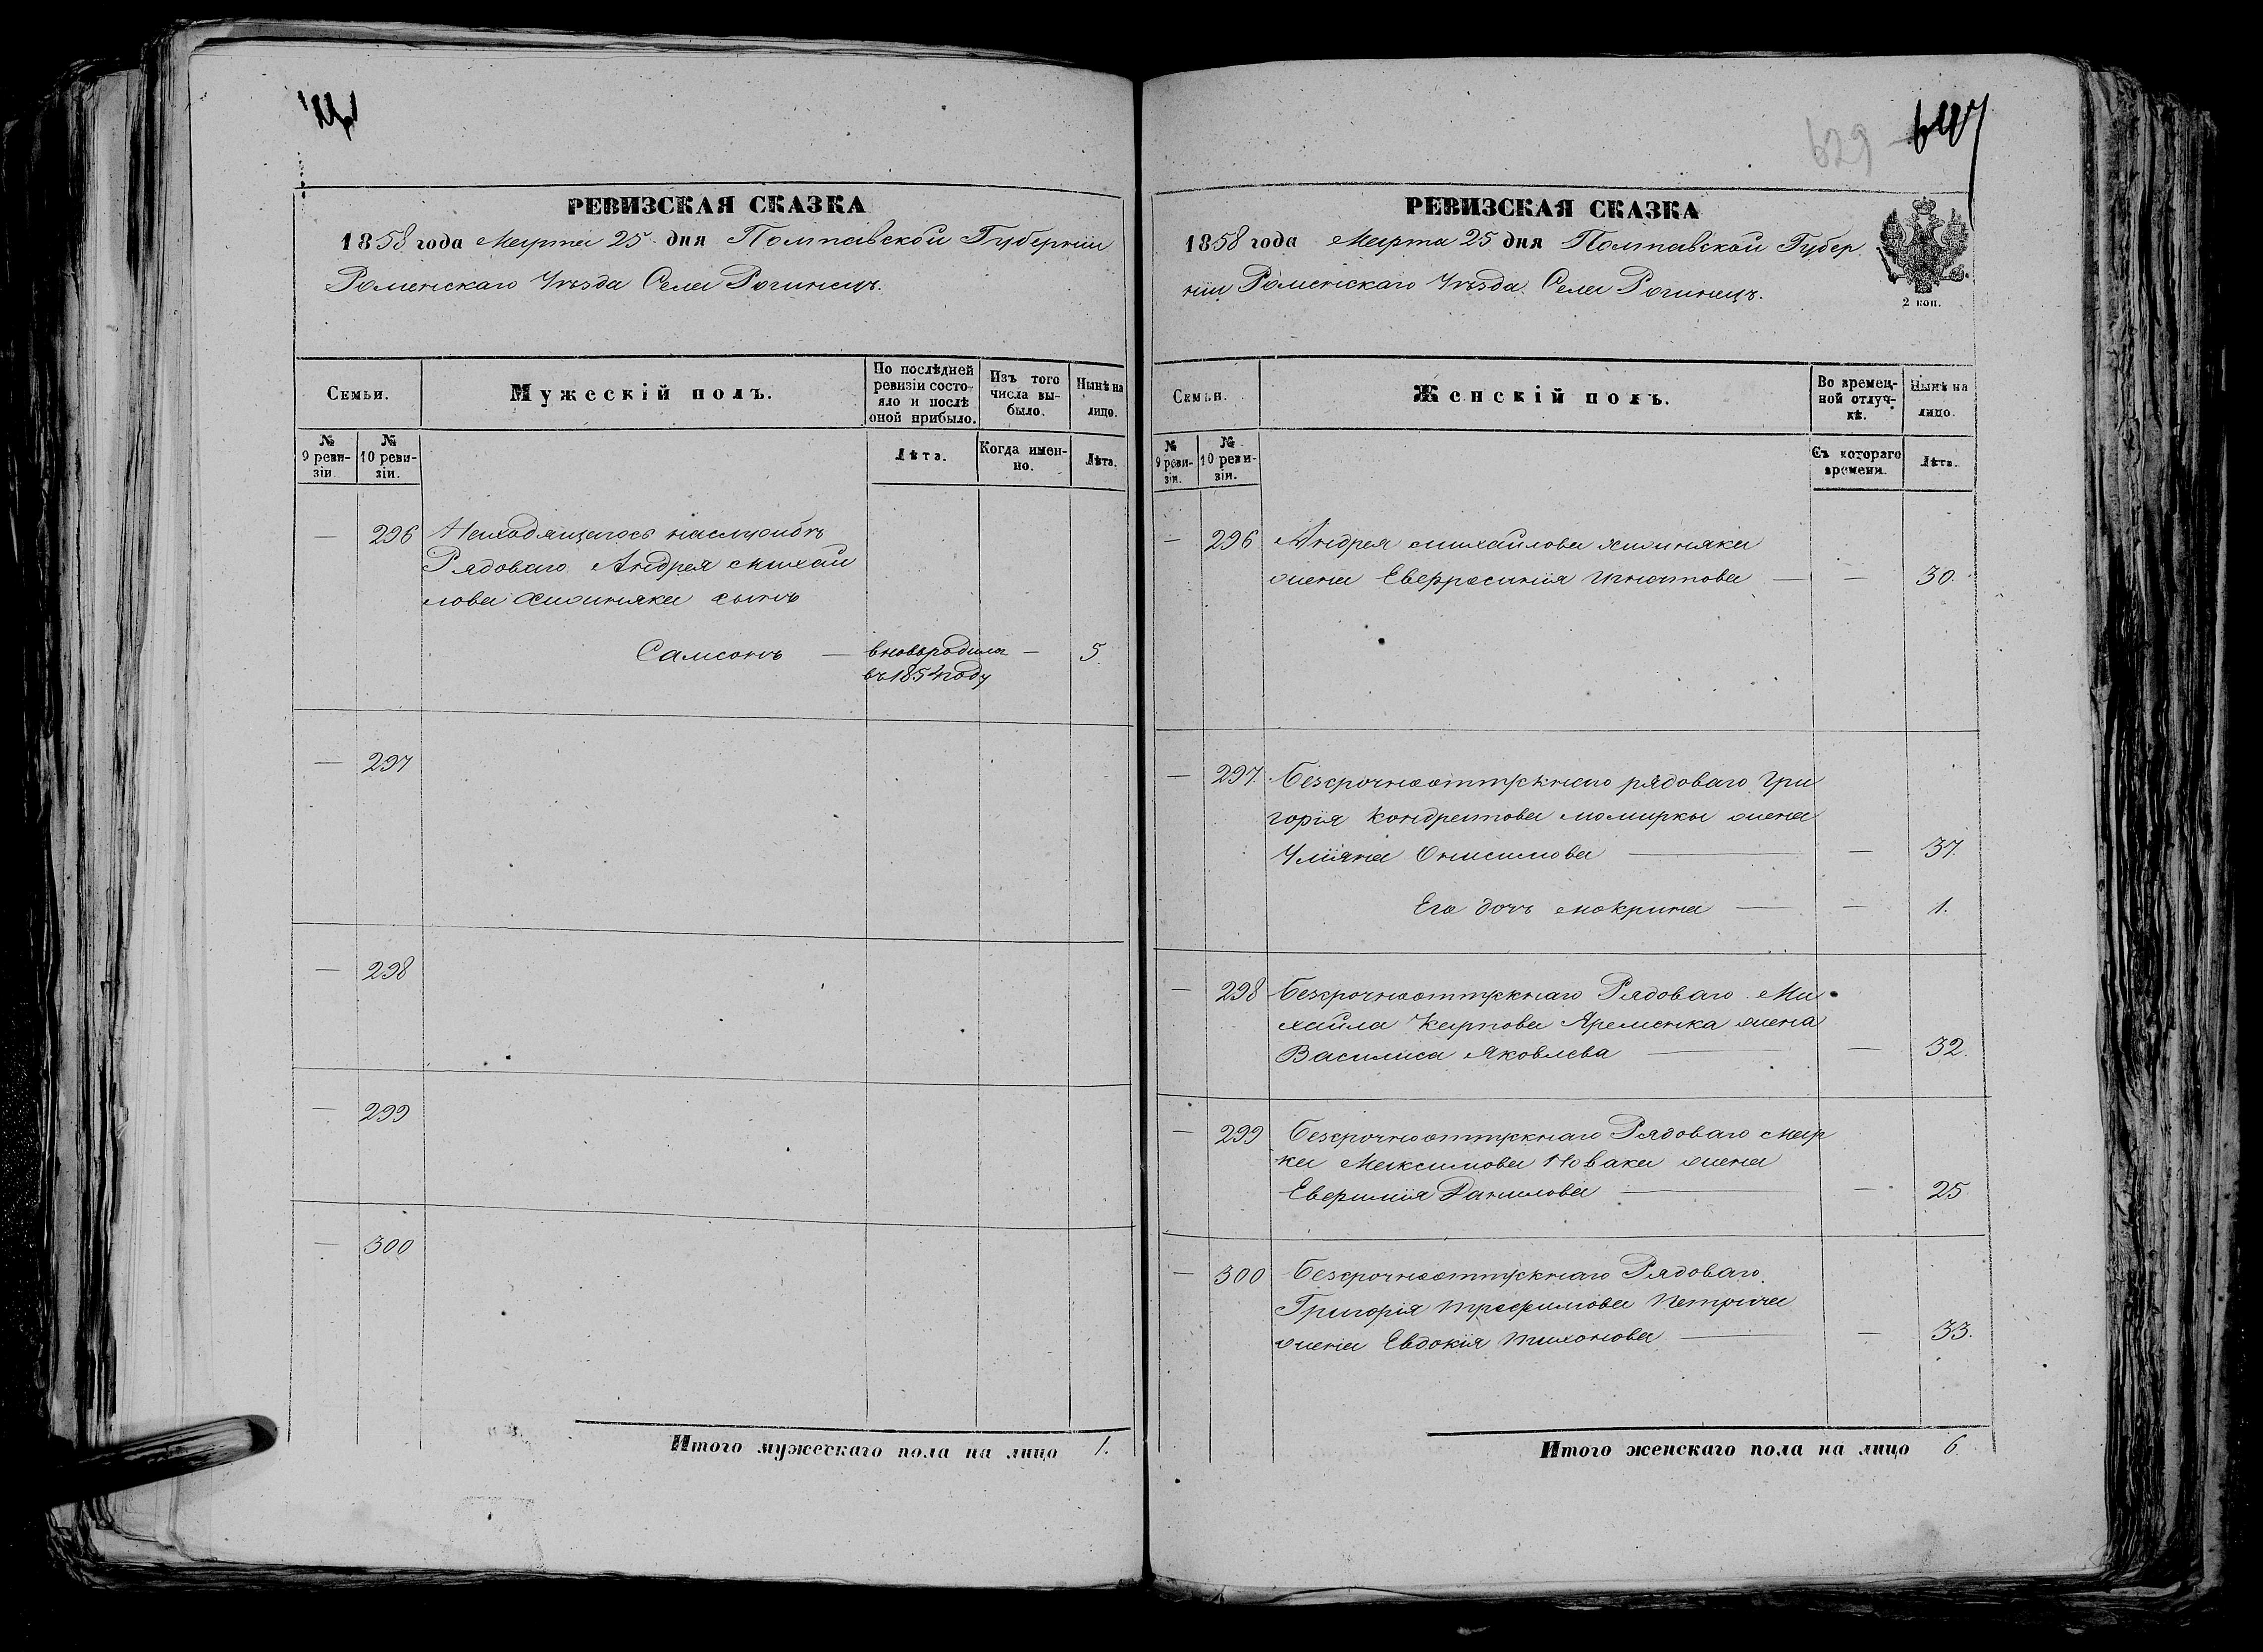 629
647
РЕВИЗСКАЯ СКАЗКА
1858 года Марта 25 дня Полтавской Губерніи
Роменскаго Уѣзда Села Рогинецъ.
Семьи.
Мужескій полъ.
По послѣдней ревизіи состояло и послѣ оной прибыло.
Изъ того числа выбыло.
Нынѣ на лицо.
№ 9 ревизіи.
№ 10 ревизіи.
Лѣта.
Когда именно.
Лѣта.
— 296 Находящегось наслужбѣ
Рядоваго Андрея Михай
лова сынъ
Самсонъ — вновьродился — 5.
въ 1854 году
— 297
— 298
— 299
— 300
Итого мужескаго пола на лицо 1.
РЕВИЗСКАЯ СКАЗКА
1858 года Марта 25 дня Полтавской Губер
ніи Роменскаго Уѣзда Села Рогинецъ.
2 коп.
Семьи.
Женскій полъ.
Во временной отлучкѣ.
Нынѣ на лицо.
№ 9 ревизіи.
№ 10 ревизіи.
Съ котораго времени.
Лѣта.
— 296 Андрея Михайлова
жена Евфросинія Игнатова — — 30.
— 297. Безсрочноотпускнаго рядоваго Гри
горія Кондратова Момырки жена
Уліяна Онисимова — — 37.
Его дочь Мокрина — — 1.
— 298 Безсрочноотпускнаго Рядоваго Ми
хайла Карпова Яременка жена
Василиса Яковлева — — 32.
— 299 Безсрочноотпускнаго Рядоваго Мар
ка Максимова Новака жена
Евфимія Данилова — — 25
— 300 Безсрочноотпускнаго Рядоваго
Григорія Трофимова Петрича
жена Евдокія Тихонова — — 33.
Итого женскаго пола на лицо 6.